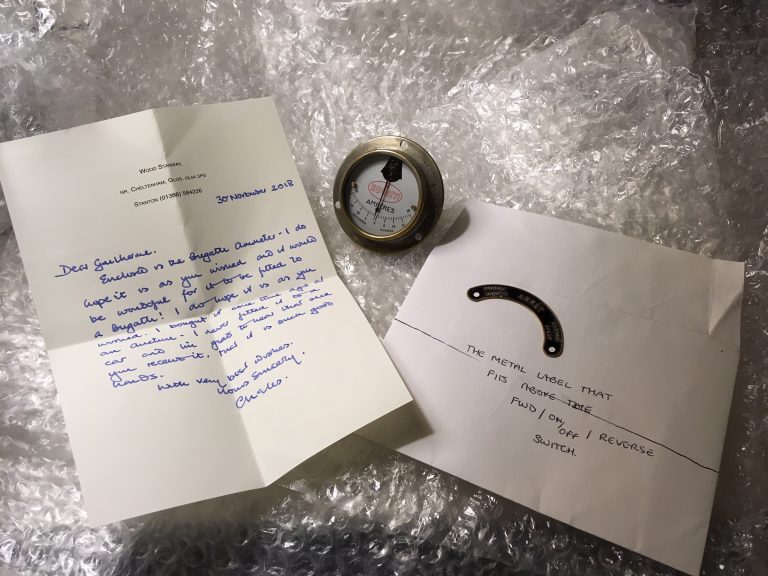 WOOD STANWAY,
NR. CHELTENHAM, GLOS. GL54 5PG
STANTON (01386) 584226
30 November 2018
Dear Guilherme.
Enclosed is the Bugatti Ammeter - I do
hope it is as you wished and it would
be wonderful for it to be fitted to
a Bugatti! I do hope it is as you
wished. I bought it some time ago at
an auction - I never fitted it to a
car and I'm glad to hear that once
you receive it, that it is such good
hands.
With very best wishes.
Yours sincerely.
Charles.
AMPÈRES
ARRET
THE METAL LABEL THAT
FITS ABOVE THE
FWD / ON / OFF / REVERSE
SWITCH.